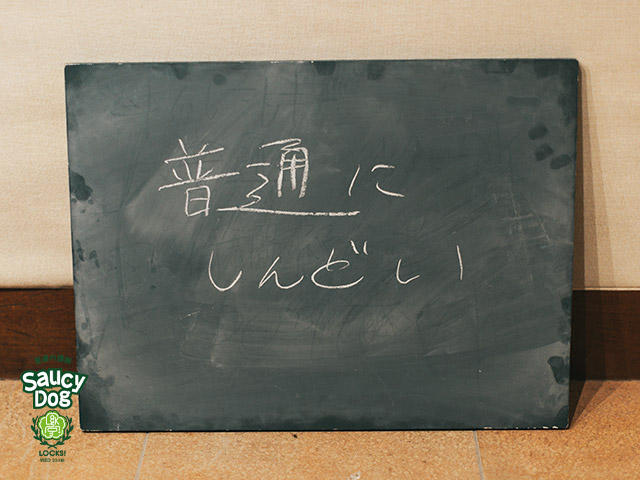 普通に
しんどい
SAUCY
DOG
LOCKS!